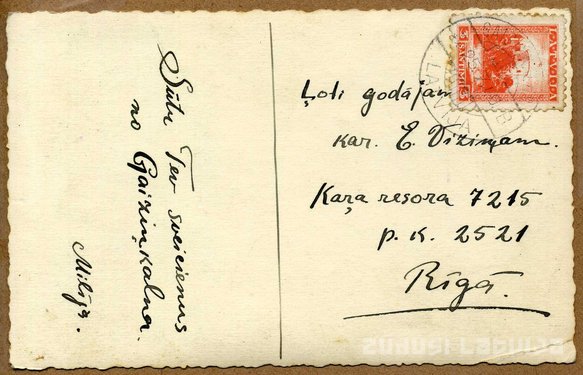 Sūtu Tev sveicienus
no Gaiziņkalna.
Milija.
Ļoti godājam
kar. E. Vīziņam.
Kaŗa resora 7215
p. k. 2521
Rīgā.
LATVIJA
5 SANTĪMI 5
LATVIJA